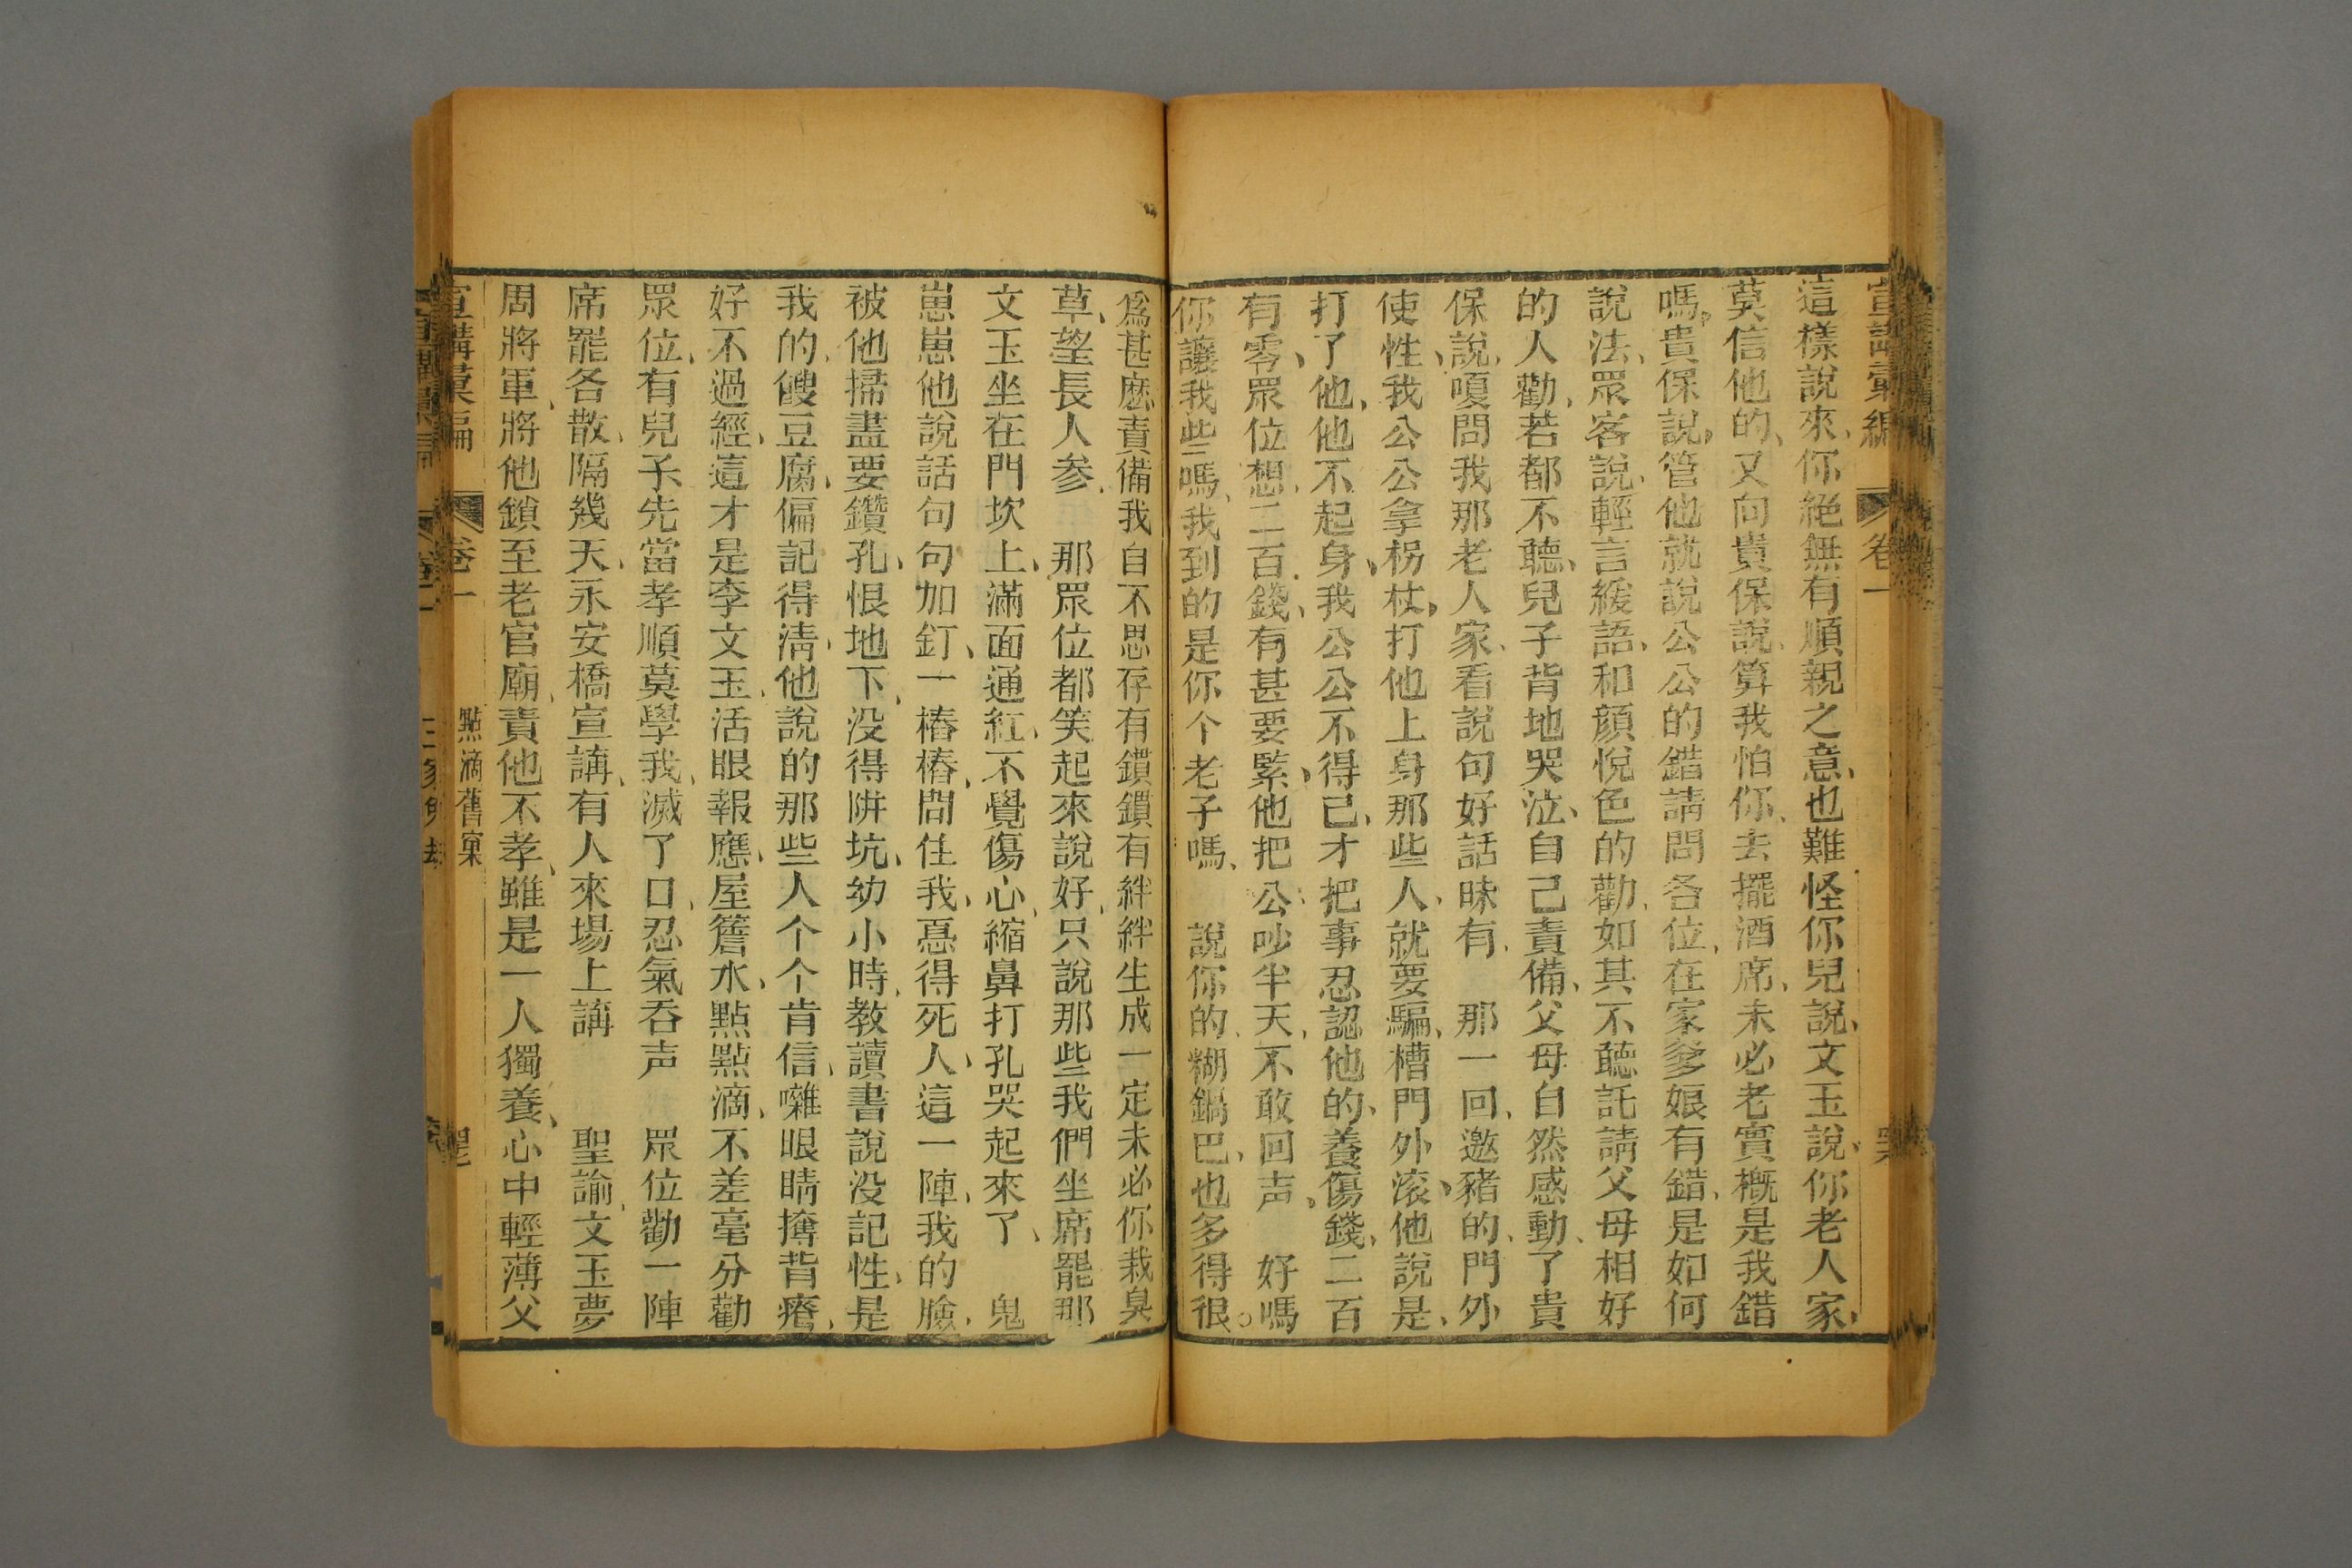 宣講彙編 卷一
這樣說來、你絕無有順親之意、也難怪你兒說、文玉說、你老人家、
莫信他的、又向貴保說、算我怕你、去擺酒席、未必老實概是我錯
嗎、貴保說、管他就說公公的錯請問各位、在家爹娘有錯、是如何
說法、眾客說、輕言緩語、和顏悅色的勸、如其不聽託請父母相好
的人勸、若都不聽、兒子背地哭泣、自己責備、父母自然感動、了貴
保說、嗄問我那老人家、看說句好話昧有、那一回、邀豬的、門外
使性、我公公拿枴杖、打他上身那些人、就要騙、槽門外滾、他說是、
打了他、他不起身、我公公不得已、才把事忍認他的、養傷錢、二百
有零、眾位想、二百錢、有甚要緊、他把公吵半天、不敢回声、好嗎
你讓我些嗎、我到的是你个老子嗎、說你的、糊鍋巴、也多得很。
為甚麽責備我自不思存有鑽鑽有絆絆生成一定未必你栽臭
草、望長人參、那眾位都笑起來說好、只說那些我們坐席罷那
文玉坐在門坎上、滿面通紅、不覺傷心、縮鼻打孔哭起來了、鬼
崽崽他說話句句加釘、一樁樁、問住我、惪得死人、這一陣、我的臉、
被他掃盡要鑽孔、恨地下、没得阱坑、幼小時、教讀書說没記性、是
我的、餿豆腐、偏記得淸、他說的那些人个个肯信、囄眼睛搼背瘠、
好不過經、這才是李文玉、活眼報應、屋簷水、點點滴、不差毫分勸
眾位、有兒子先當孝順莫學我、滅了口、忍氣吞声 眾位勸一陣
席罷各散、隔幾天、永安橋宣講、有人來場上講 聖諭、文玉夢
周將軍、將他鎖至老官廟、責他不孝、雖是一人獨養、心中輕薄父
宣講彙編 卷一 點滴舊窠